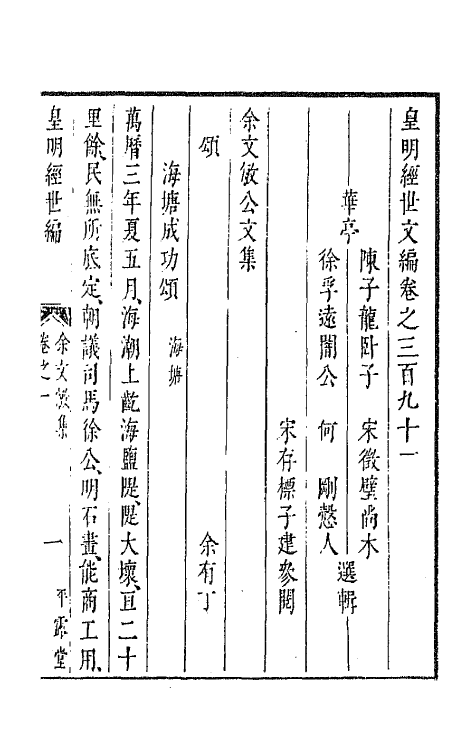 皇明經世文編卷之三百九十一
華亭
陳子龍臥子 宋徵璧尚木
徐孚遠闇公 何 剛慤人
選輯
宋存標子建參閱
余文敏公文集
頌 余有丁
海塘成功頌 海塘
萬曆三年夏五月、海潮上齧海鹽隄、隄大壞、亘二十
里餘、民無所底定、朝議司馬徐公、明石畫、能商工用、
皇明經世編 余文敏集 卷之一 一 平露堂